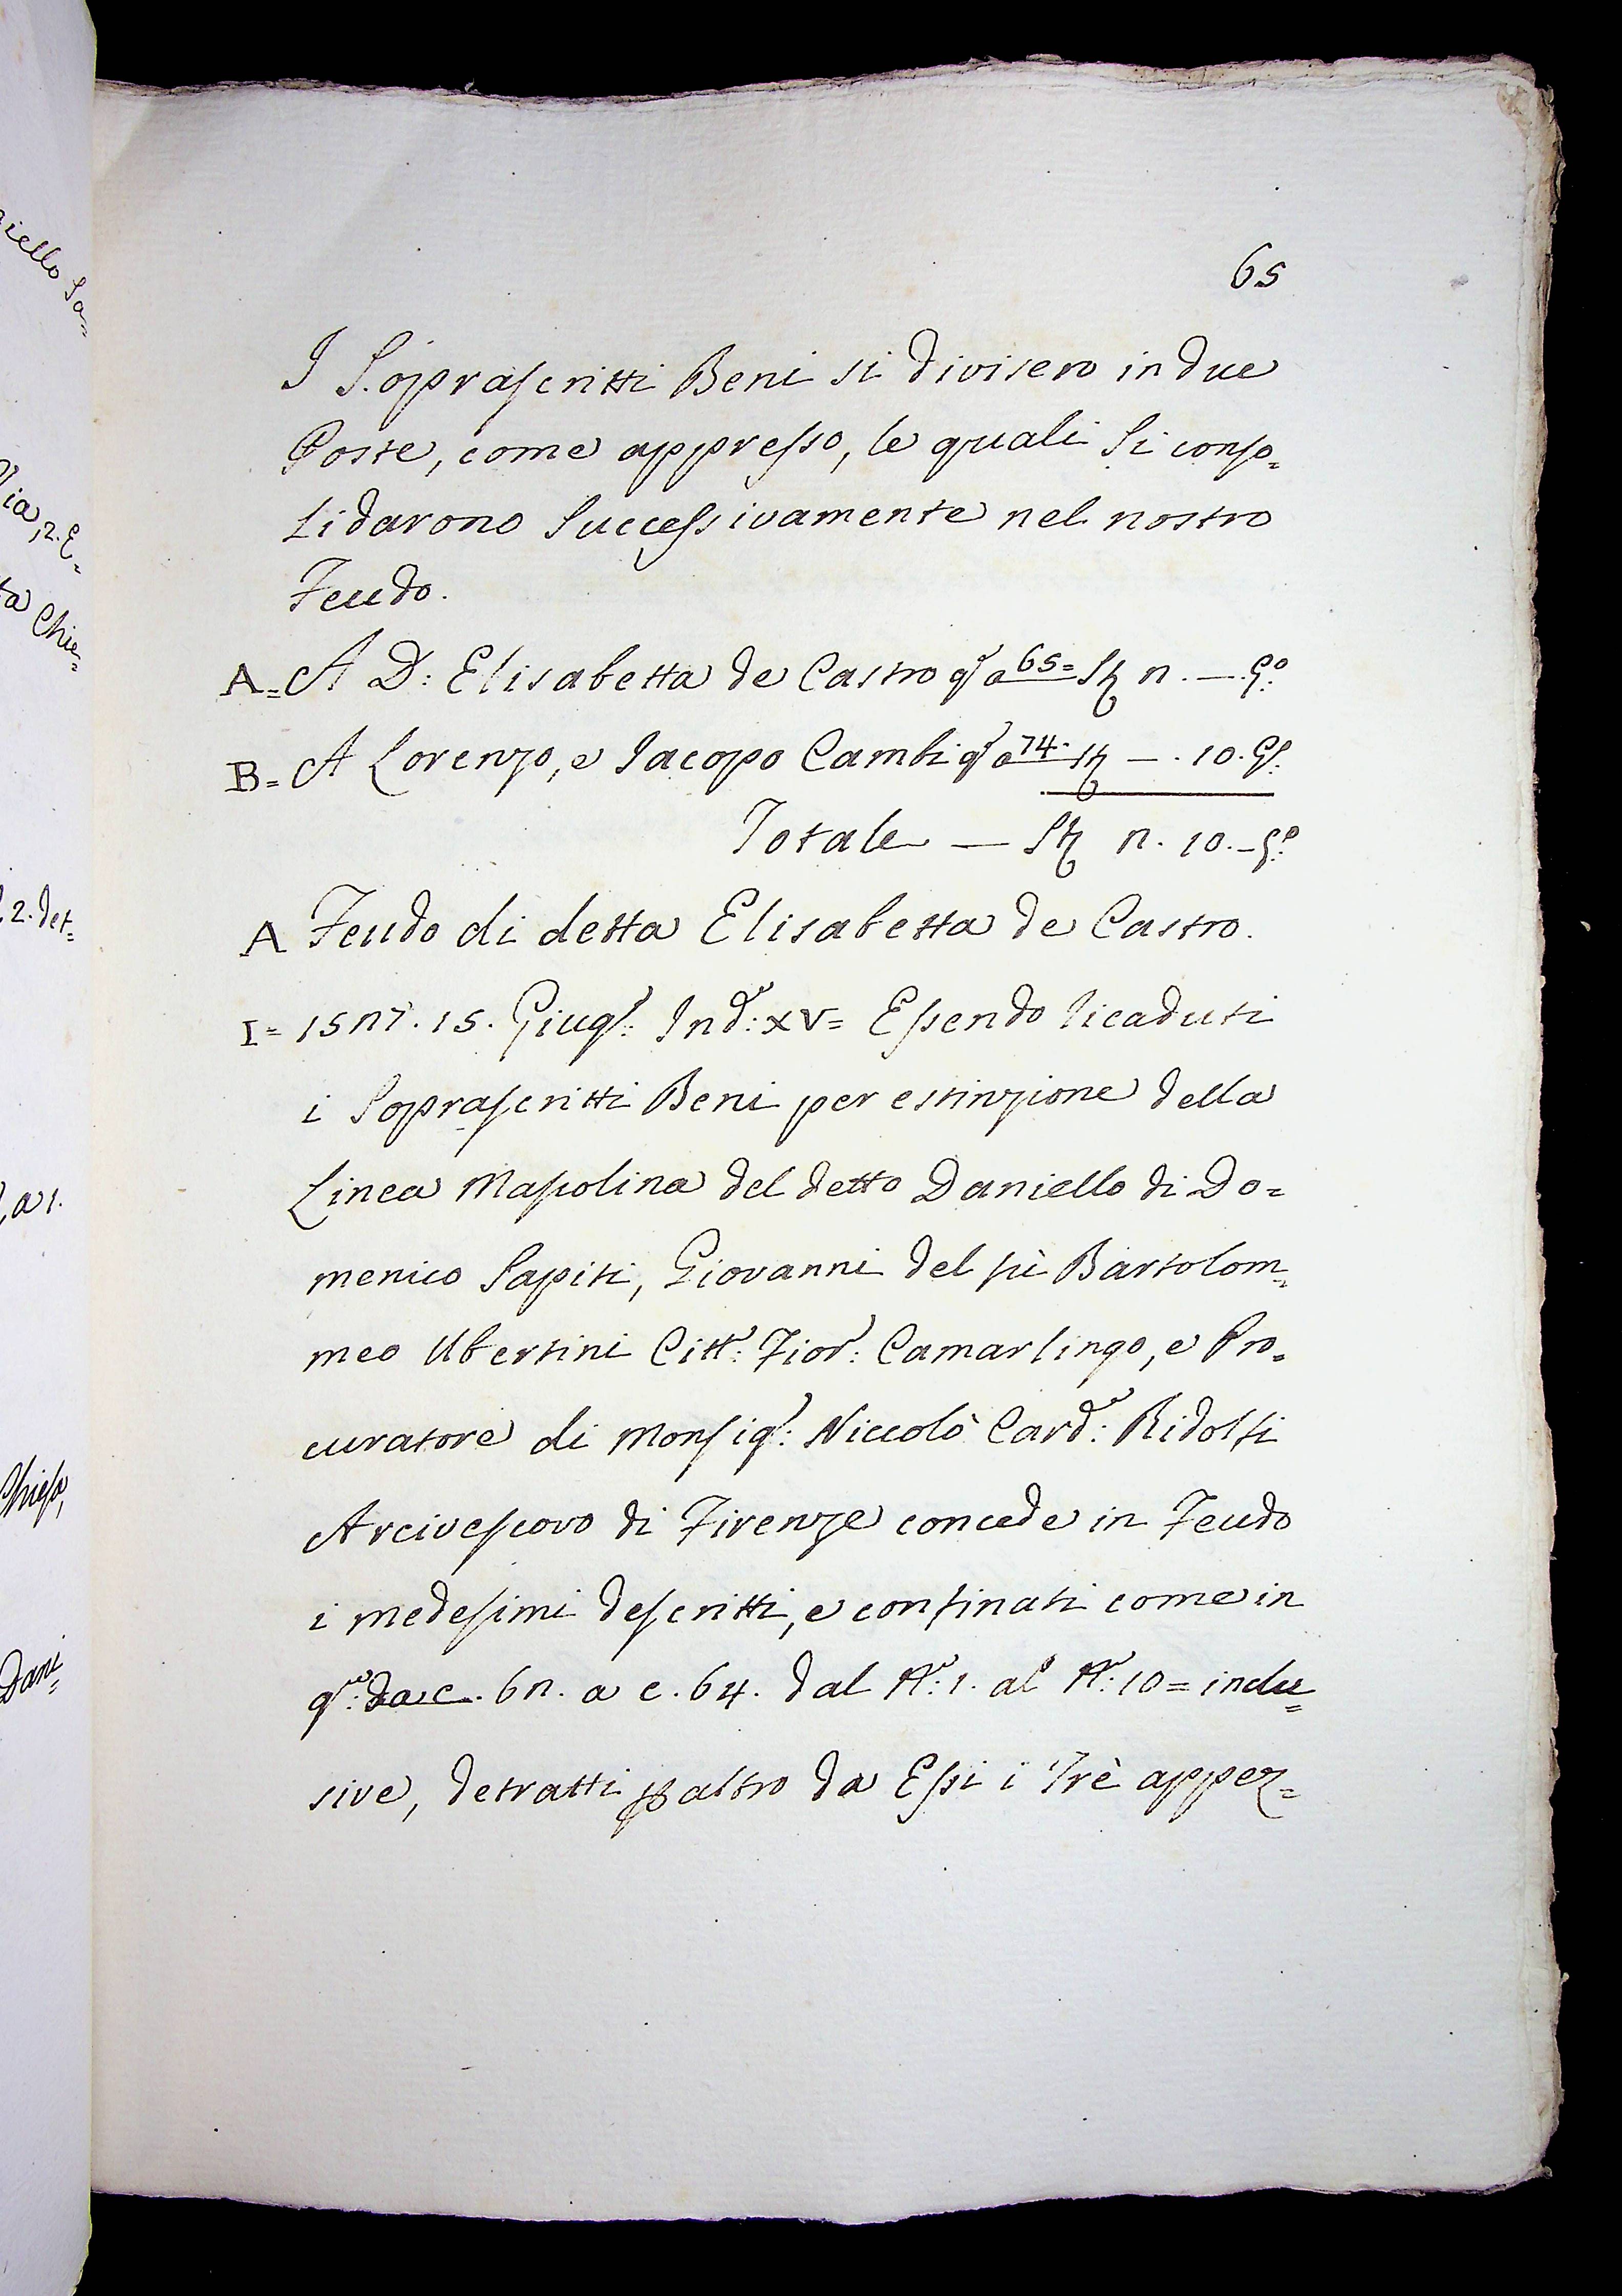 65
I Soprascritti Beni si divisero in due
Poste, come appresso, le quali si conso=
lidarono successivamente nel nostro
Feudo.
A= A D: Elisabetta de Castro q.º a 65=
B= A Lorenzo, e Jacopo Cambi q.º a 74. — . 10.
Totale — 10.
A Feudo di detta Elisabetta de Castro.
I= 15n7. 15. Giug.º: Ind.e: XV= Essendo ricaduti
i Soprascritti Beni per estinzione della
Linea Masolina del detto Daniello di Do=
menico Sapiti, Giovanni del fù Bartolom=
meo Ubertini Citt.º: Fior.º: Camarlingo, e Pro=
curatore di Monsig.º: Niccolò Card.e: Ridolfi
Arcivescovo di Firenze concede in Feudo
i medesimi descritti, e confinati come in
q.º: da c. 6n. a c. 64. dal N.º: 1. al N.º: 10= inclu=
sive, detratti paltro da Essi i Trè appez=
iello Sa=
via, 2. E=
ta Chie=
2. det=
, a 1.
Chiesa,
Dani=